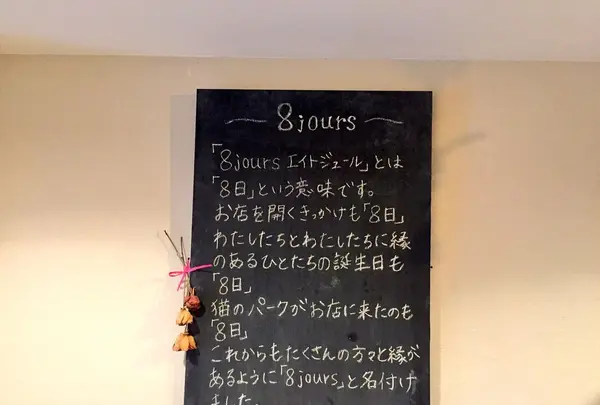 8jours
「8jours エイトジュール」とは
「8日」という意味です。
お店を開くきっかけも「8日」
わたしたちとわたしたちに縁
のあるひとたちの誕生日も
「8日」
猫のパークがお店に来たのも
「8日」
これからもたくさんの方々と縁が
あるように「8jours」と名付け
ました。